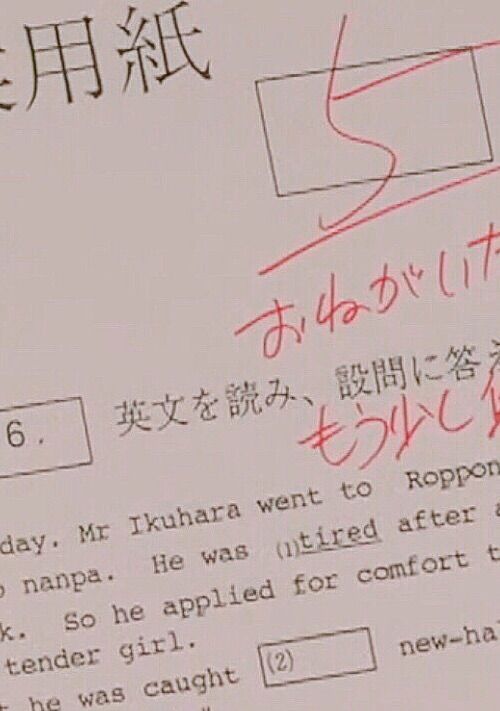 用紙
5
おねがいた
6. 英文を読み、設問に答え
もう少し
day. Mr Ikuhara went to Roppon
nanpa. He was (1)tired after a
k. So he applied for comfort t
tender girl.
he was caught (2) new-hal